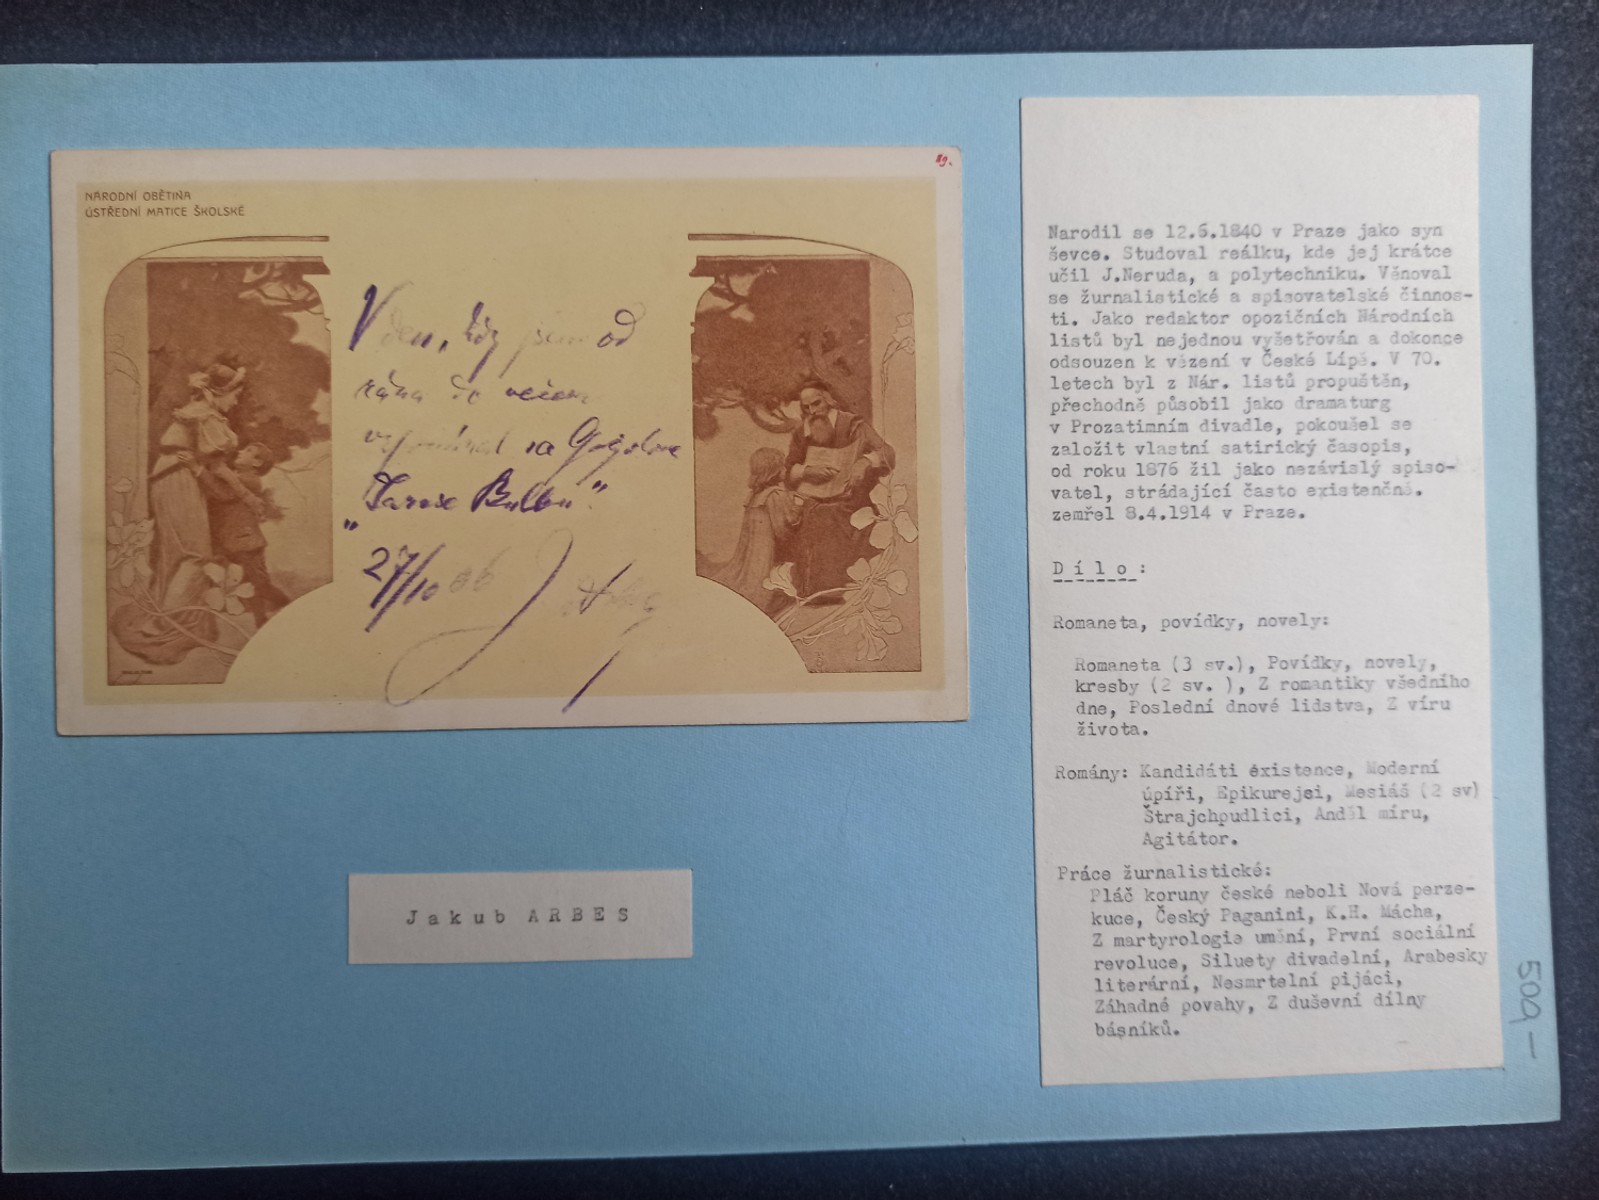 NÁRODNÍ OBĚTINA
ÚSTŘEDNÍ MATICE ŠKOLSKÉ
V den, kdy jsem od
rána do večera
na Gogolova
„Tarase Bulbu".
27/10 06
Jakub ARBES
Narodil se 12.6.1840 v Praze jako syn
ševce. Studoval reálku, kde jej krátce
učil J.Neruda, a polytechniku. Věnoval
se žurnalistické a spisovatelské činnos-
ti. Jako redaktor opozičních Národních
listů byl nejednou vyšetřován a dokonce
odsouzen k vězení v České Lípě. V 70.
letech byl z Nár. listů propuštěn,
přechodně působil jako dramaturg
v Prozatimním divadle, pokoušel se
založit vlastní satirický časopis,
od roku 1876 žil jako nezávislý spiso-
vatel, strádající často existenčně.
zemřel 8.4.1914 v Praze.
Dílo:
Romaneta, povídky, novely:
Romaneta (3 sv.), Povídky, novely,
kresby (2 sv. ), Z romantiky všedního
dne, Poslední dnové lidstva, Z víru
života.
Romány: Kandidáti existence, Moderní
úpíři, Epikurejci, Mesiáš (2 sv)
Štrajchpudlici, Anděl míru,
Agitátor.
Práce žurnalistické:
Pláč koruny české neboli Nová perze-
kuce, Český Paganini, K.H. Mácha,
Z martyrologie umění, První sociální
revoluce, Siluety divadelní, Arabesky
literární, Nesmrtelní pijáci,
Záhadné povahy, Z duševní dílny
básníků.
500,-